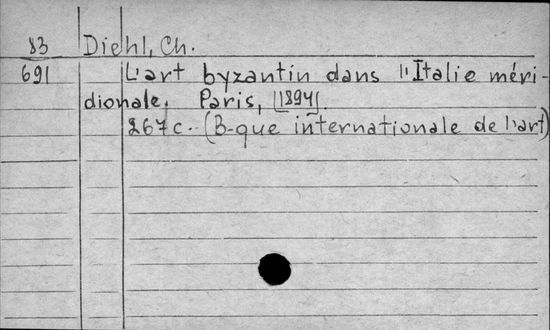 83 Diehl, Ch.
691 L'art byzantin dans l'Italie méri-
dionale. Paris, [1894].
267 c.- (B-que internationale de l'art)